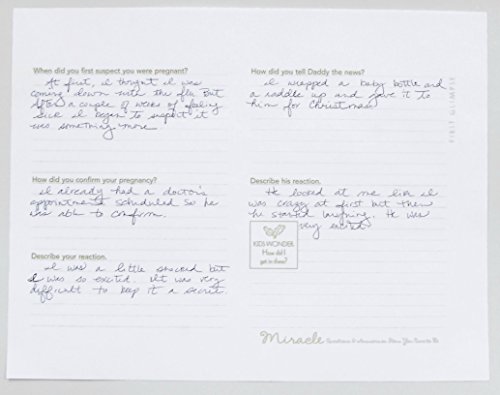 When did you first suspect you were pregnant?
At first, I thought I was
coming down with the flu. But
after a couple of weeks of feeling
sick I began to suspect it
was something more.
How did you confirm your pregnancy?
I already had a doctor's
appointment scheduled so he
was able to confirm.
Describe your reaction.
I was a little scared but
I was so excited. It was very
difficult to keep it a secret.
How did you tell Daddy the news?
I wrapped a baby bottle and
a rattle up and gave it to
him for Christmas.
FIRST GLIMPSE
Describe his reaction.
He looked at me like I
was crazy at first but then
he started laughing. He was
very excited.
KIDS WONDER
How did I
get in there?
Miracle Questions & Answers on How You Came to Be